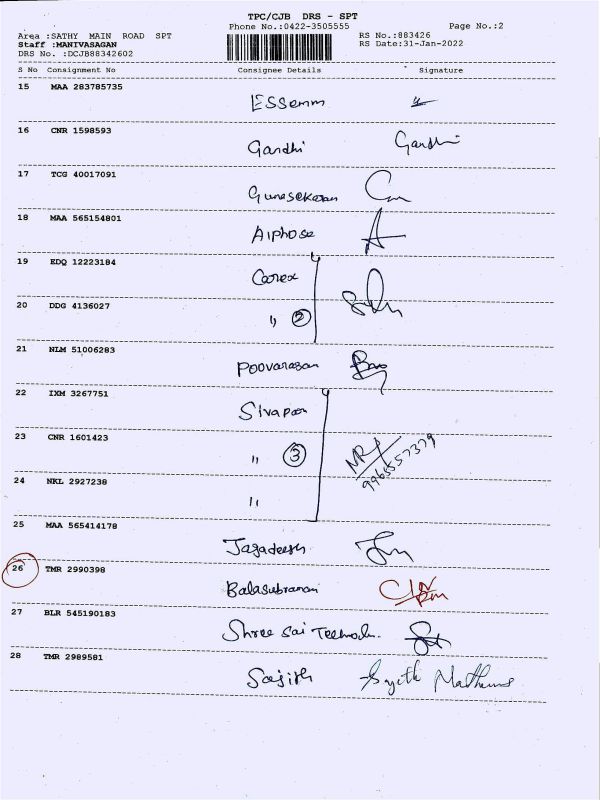 TPC/CJB DRS - SPT
Phone No.:0422-3505555 Page No.:2
Area :SATHY MAIN ROAD SPT RS No.:883426
Staff :MANIVASAGAN RS Date:31-Jan-2022
DRS No. :DCJB88342602
S No Consignment No Consignee Details Signature
15 MAA 283785735
ESSemm
16 CNR 1598593
Gandhi Gandhi
17 TCG 40017091
Gunasekaran
18 MAA 565154801
Alphose A
19 EDQ 12223184
Carex
20 DDG 4136027
" 2
21 NLM 51006283
Poovarasan
22 IXM 3267751
Sivapan
23 CNR 1601423
" 3
9965557379
24 NKL 2927238
"
25 MAA 565414178
Jagadeesh
26 TMR 2990398
Balasubramani
27 BLR 545190183
Shree Sai
28 TMR 2989581
Sajith Sajith